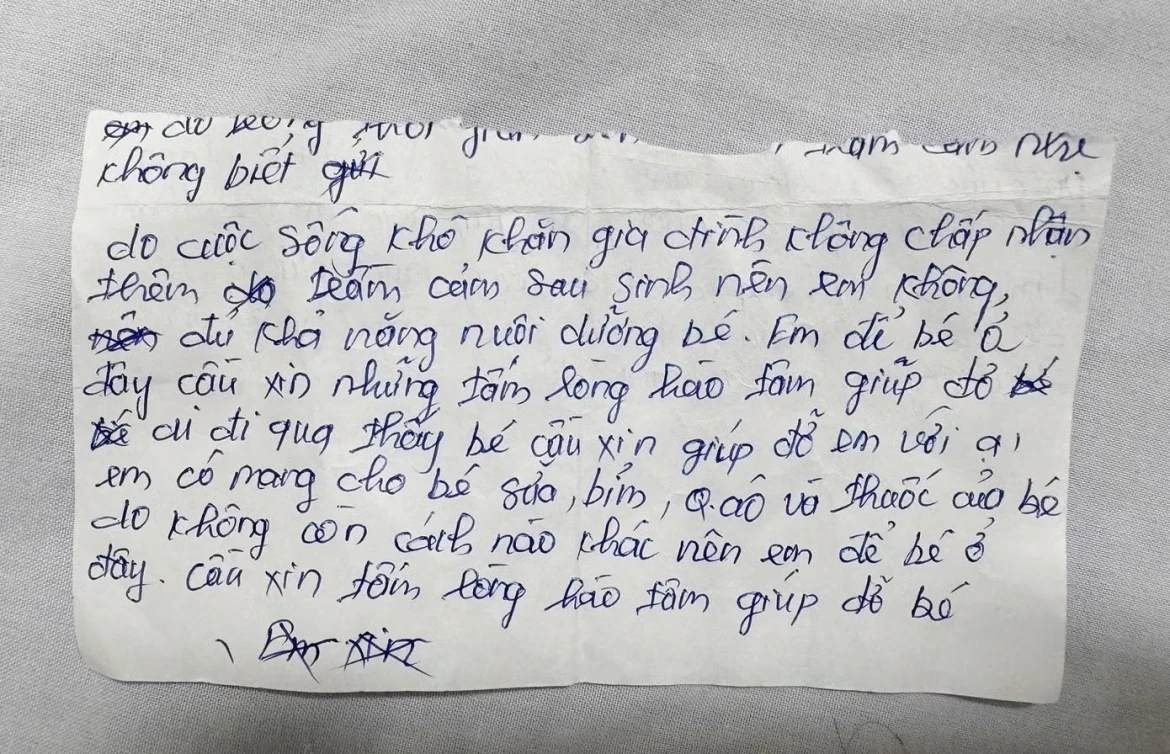 không biết
do cuộc sống khó khăn gia đình không chấp nhận
thêm trầm cảm sau sinh nên em không
đủ khả năng nuôi dưỡng bé. Em để bé ở
đây cầu xin những tấm lòng hảo tâm giúp đỡ
đi qua thấy bé cầu xin giúp đỡ em với ạ,
em có mang cho bé sữa, bỉm, Q.áo và thuốc của bé
do không còn cách nào khác nên em để bé ở
đây. cầu xin tấm lòng hảo tâm giúp đỡ bé